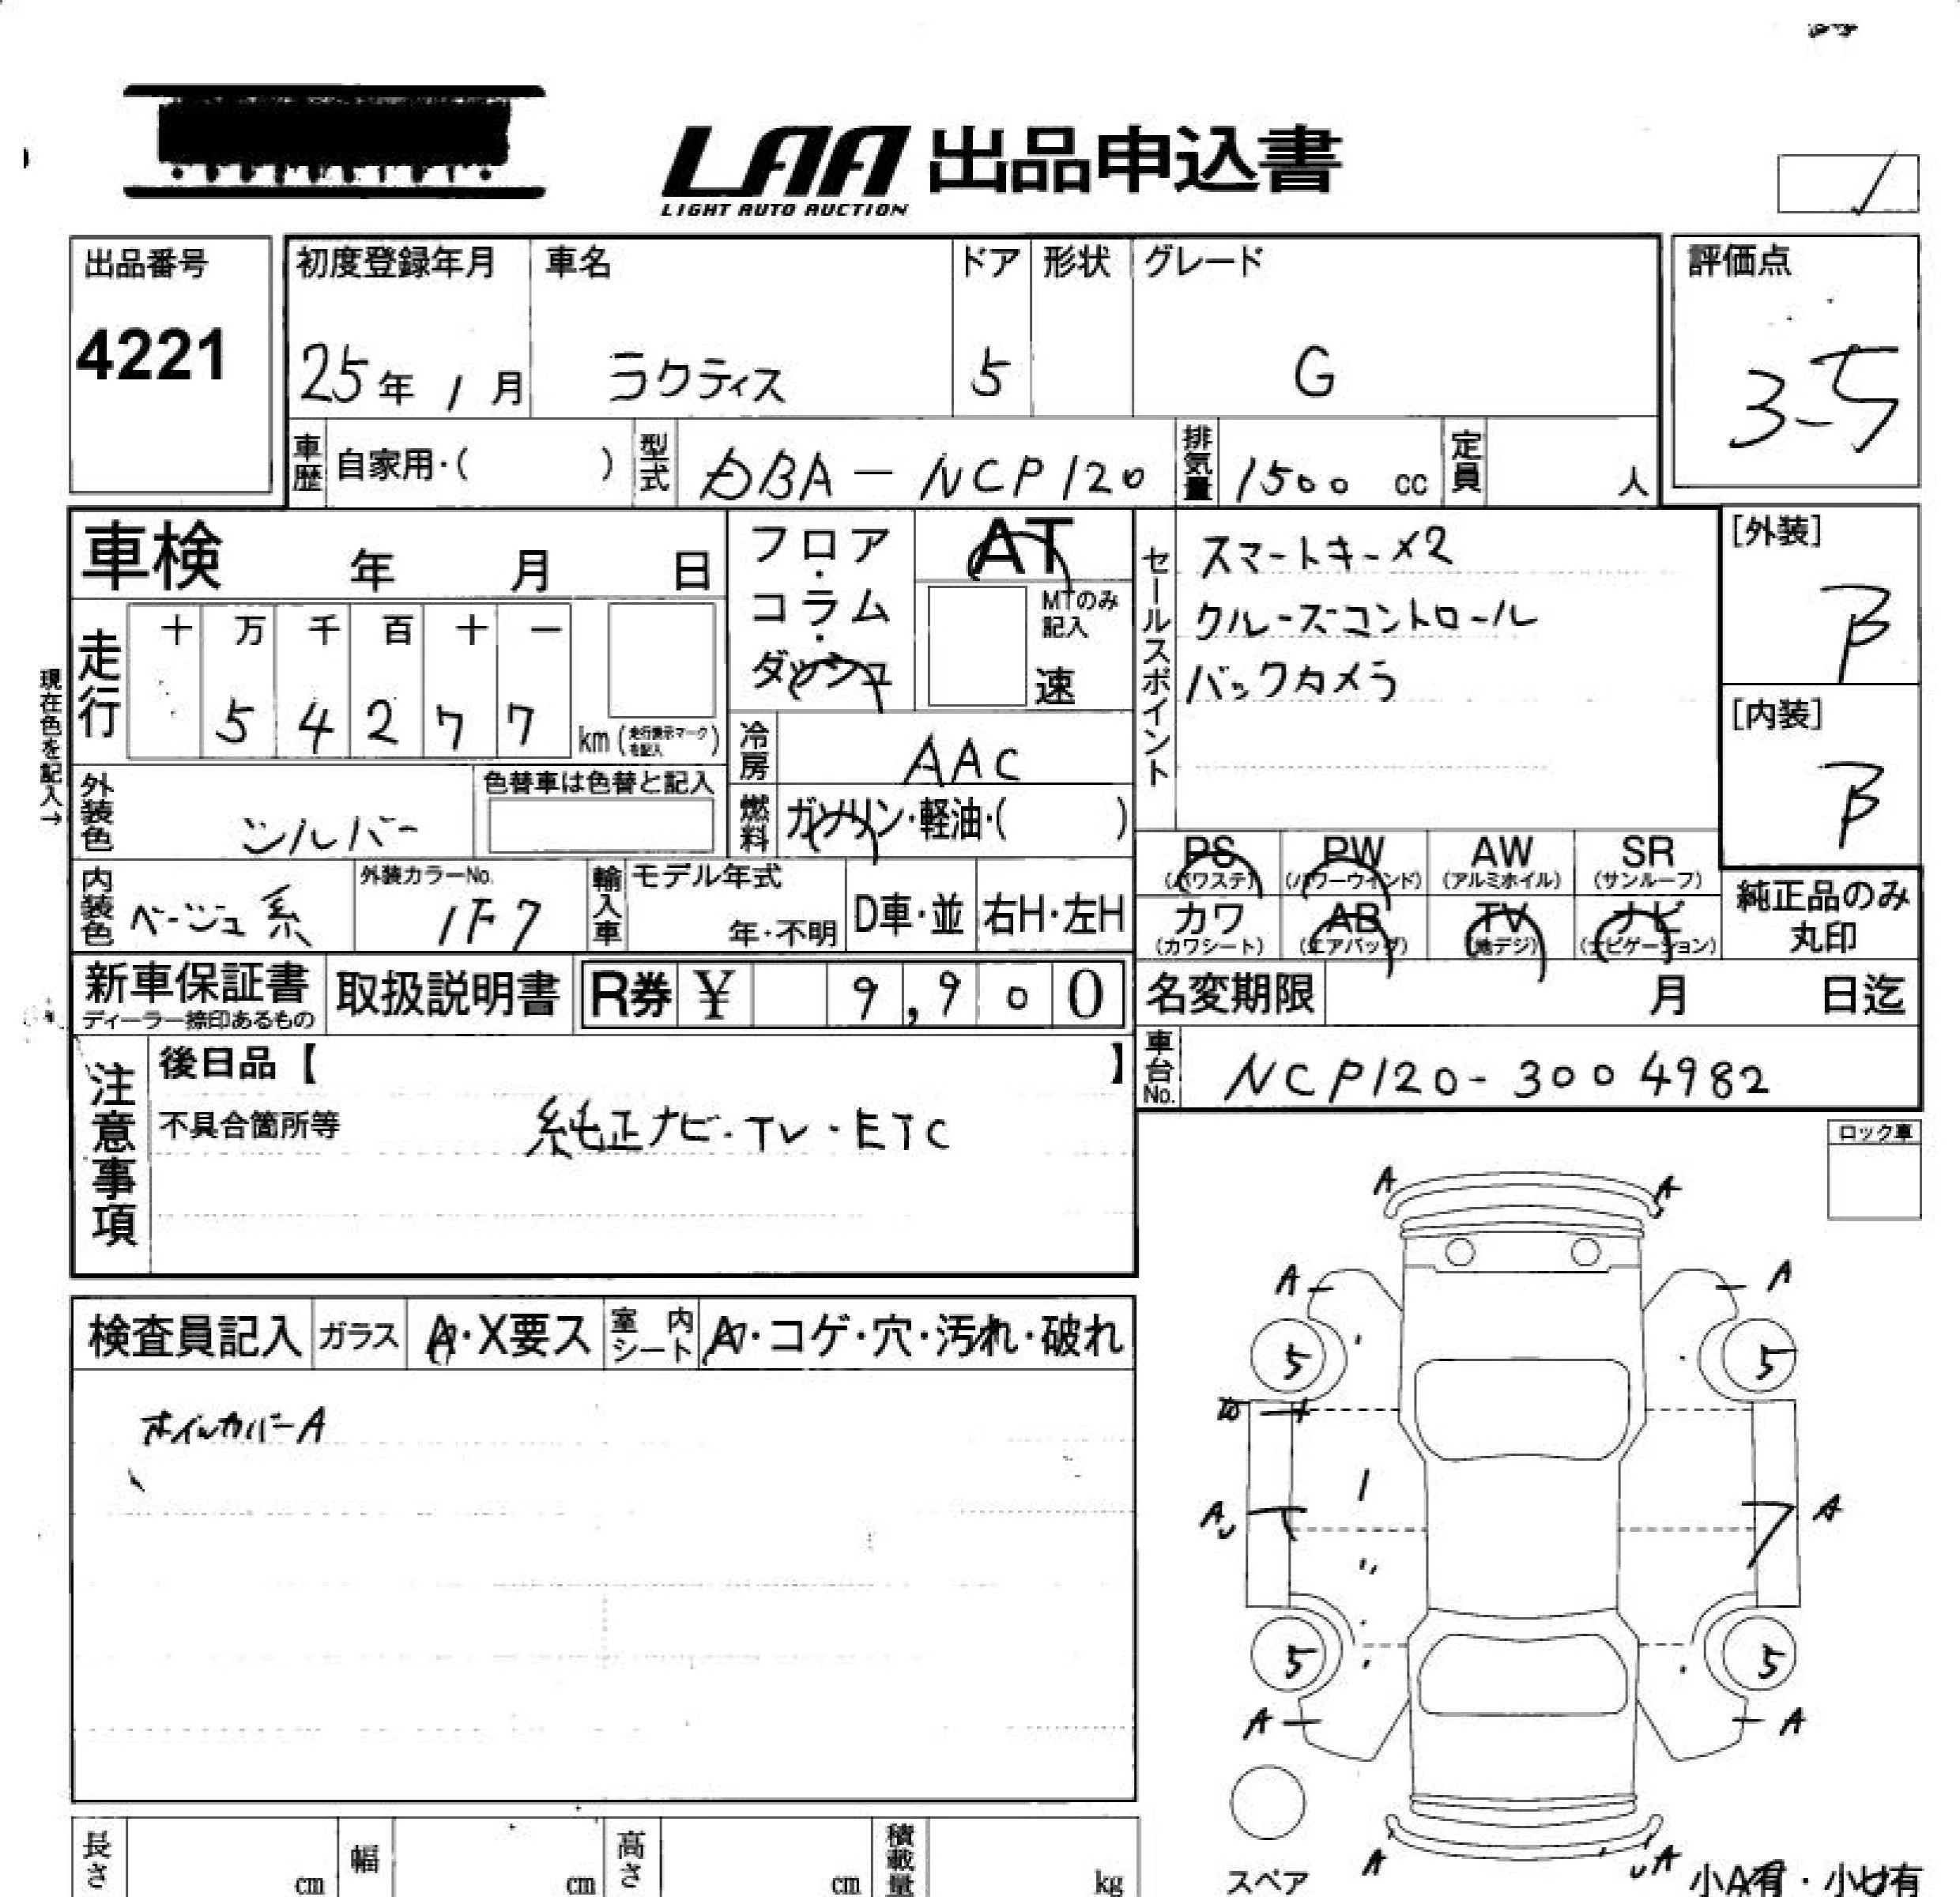 LAA 出品申込書
LIGHT AUTO AUCTION
出品番号
4221
初度登録年月
25年 1月
車名
ラクティス
ドア
5
形状
グレード
G
評価点
3-5
車歴 自家用・( )
型式 DBA-NCP120
排気量 1500 cc
定員 人
車検 年 月 日
走行
十 万 千 百 十 一
5 4 2 7 7
km (走行表示マークを記入)
現在色を記入→
フロア・コラム・ダッシュ
AT
MTのみ記入
速
冷房 AAC
燃料 ガソリン・軽油・( )
セールスポイント
スマートキー×2
クルーズコントロール
バックカメラ
[外装]
B
[内装]
B
外装色 シルバー
色替車は色替と記入
内装色 ベージュ系
外装カラーNo.
1F7
輸入車
モデル年式
年・不明
D車・並
右H・左H
PS (パワステ)
PW (パワーウインド)
AW (アルミホイル)
SR (サンルーフ)
カワ (カワシート)
AB (エアバッグ)
TV (地デジ)
ナビ (ナビゲーション)
純正品のみ丸印
新車保証書
ディーラー捺印あるもの
取扱説明書
R券 ¥ 9,900
名変期限 月 日迄
車台No. NCP120-3004982
注意事項
後日品【 】
不具合箇所等
純正ナビ・TV・ETC
ロック車
検査員記入
ガラス A・X要ス
室内シート A・コゲ・穴・汚れ・破れ
ホイルカバーA
A A
A A
5 5
A
A
5 5
A A
A A
スペア
小A有・小U有
長さ cm
幅 cm
高さ cm
積載量 kg